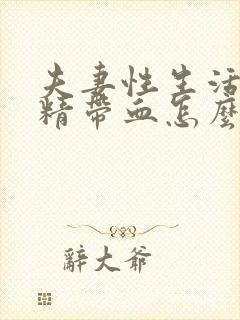 夫妻性生活
精帶血怎麼
辭大爺